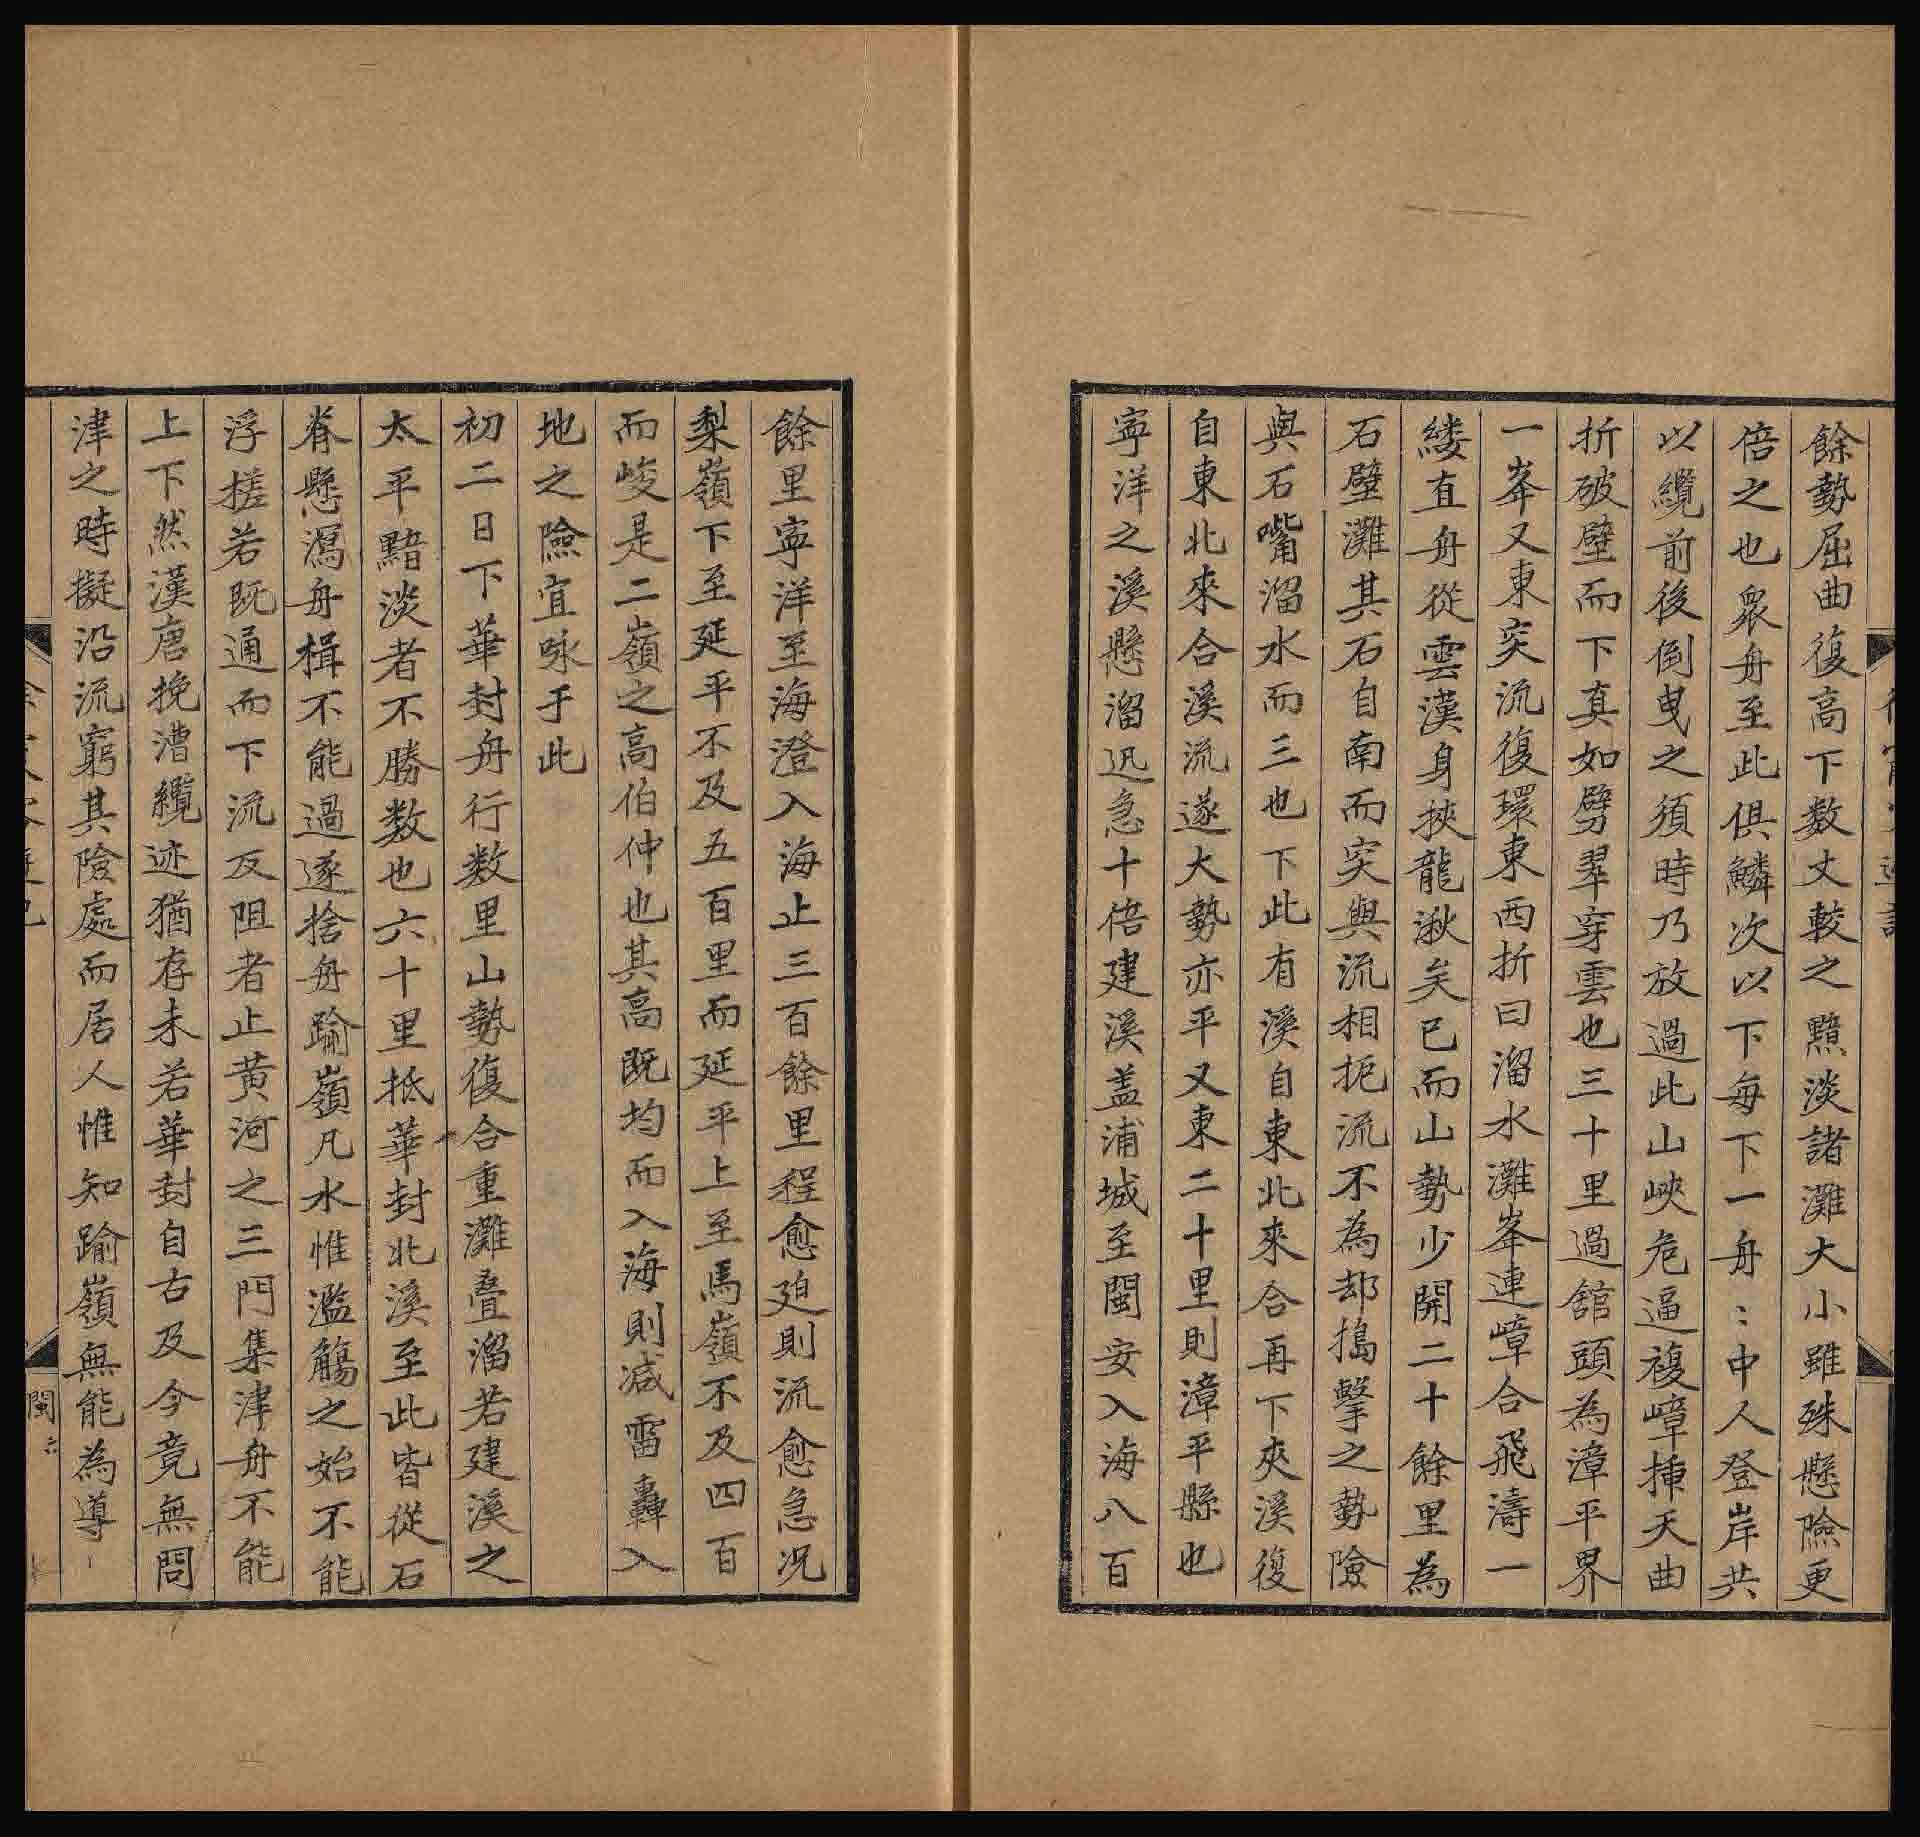 餘勢屈曲復高下数丈較之黯淡諸灘大小雖殊懸險更
倍之也衆舟至此俱鱗次以下每下一舟〻中人登岸共
以纜前後倒曳之須時乃放過此山峽危逼複嶂插天曲
折破壁而下真如劈翠穿雲也三十里過舘頭為漳平界
一峯又東突流復環東西折曰溜水灘峯連嶂合飛濤一
縷直舟從雲漢身挾龍湫矣已而山勢少開二十餘里為
石壁灘其石自南而突與流相扼流不為却搗擊之勢險
與石嘴溜水而三也下此有溪自東北來合再下夾溪復
自東北來合溪流遂大勢亦平又東二十里則漳平縣也
寧洋之溪懸溜迅急十倍建溪盖浦城至閩安入海八百
餘里寧洋至海澄入海止三百餘里程愈廹則流愈急况
梨嶺下至延平不及五百里而延平上至馬嶺不及四百
而峻是二嶺之高伯仲也其高既均而入海則减雷轟入
地之險宜咏于此
初二日下華封舟行数里山勢復合重灘疊溜若建溪之
太平黯淡者不勝数也六十里抵華封北溪至此皆從石
脊懸瀉舟楫不能過遂捨舟踰嶺凡水惟濫觴之始不能
浮槎若既通而下流反阻者止黄河之三門集津舟不能
上下然漢唐挽漕纜迹猶存未若華封自古及今竟無問
津之時擬沿流窮其險處而居人惟知踰嶺無能為導
閩 六